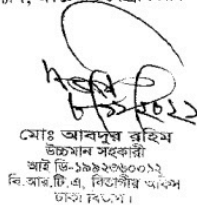 ৮/১১/২০২১
মোঃ আবদুর রহিম
উচ্চমান সহকারী
আই ডি-১৯৯২৩৬০০১২
বি.আর.টি.এ, বিভাগীয় অফিস
ঢাকা বিভাগ।